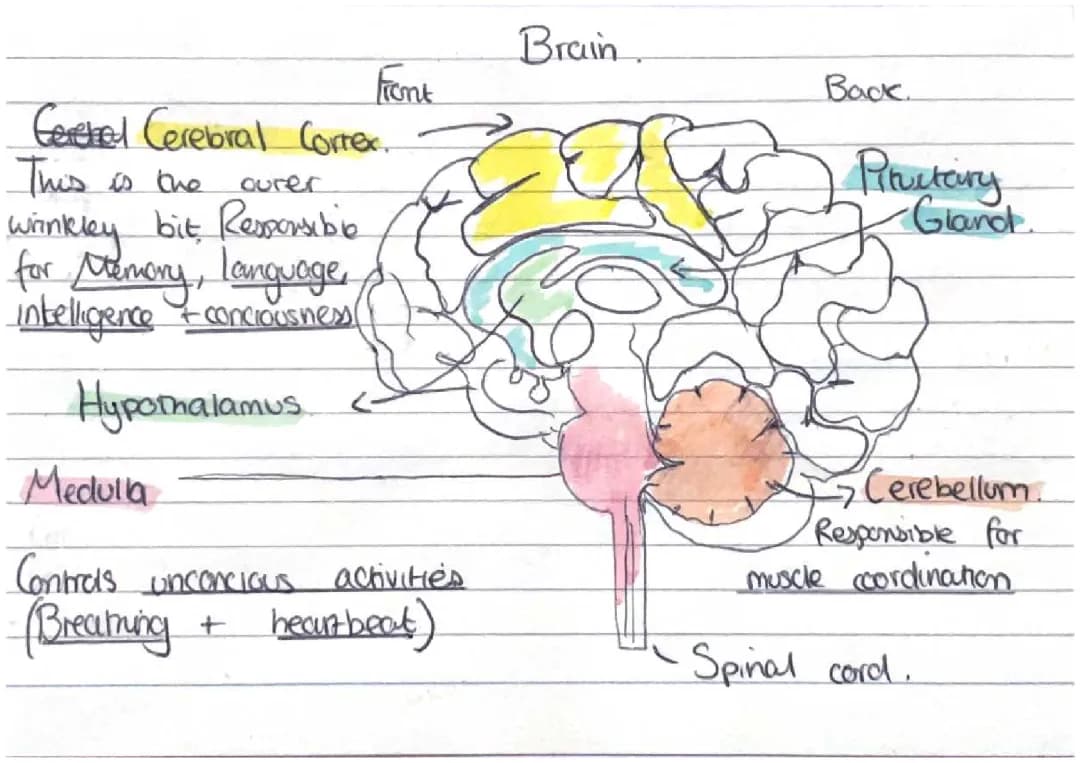 Brain.
Front
Back.
Cerebral Cortex.
This is the outer
wrinkley bit. Responsible
for Memory, language,
intelligence + conciousness
Pituitary
Gland.
Hypothalamus
Medulla
Cerebellum.
Responsible for
muscle coordination
Controls unconcious activities
(Breathing + heartbeat)
Spinal cord.